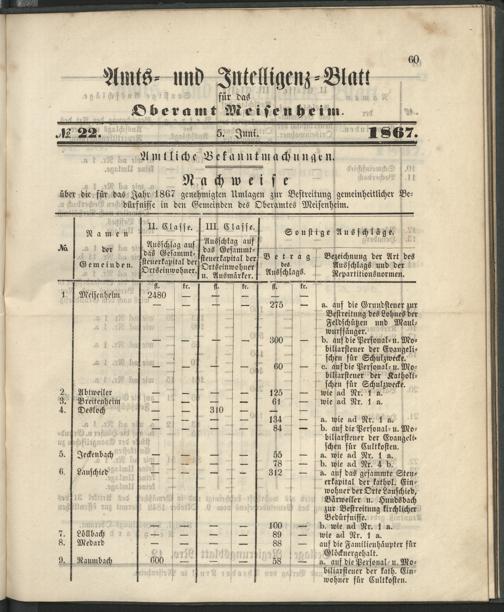 60
Amts- und Intelligenz-Blatt
für das
Oberamt Meisenheim.
№ 22. 5. Juni. 1867.
Amtliche Bekanntmachungen.
Nachweise
über die für das Jahr 1867 genehmigten Umlagen zur Bestreitung gemeinheitlicher Be-
dürfnisse in den Gemeinden des Oberamtes Meisenheim.
№.
Namen
der
Gemeinden.
II. Classe.
Ausschlag auf
das Gesammt-
steuerkapital der
Ortseinwohner.
III. Classe.
Ausschlag auf
das Gesammt-
steuerkapital der
Ortseinwohner
u. Ausmärker.
Sonstige Ausschläge.
Betrag
des
Ausschlags.
Bezeichnung der Art des
Ausschlags und der
Repartitionsnormen.
fl. kr. fl. kr. fl. kr.
1. Meisenheim 2480 — — — — —
— — — — 275 — a. auf die Grundsteuer zur
Bestreitung des Lohnes der
Feldschützen und Maul-
wurfsfänger.
— — — — 300 — b. auf die Personal- u. Mo-
biliarsteuer der Evangeli-
schen für Schulzwecke.
— — — — 60 — c. auf die Personal- u. Mo-
biliarsteuer der Katholi-
schen für Schulzwecke.
2. Abtweiler — — — — 125 — wie ad Nr. 1 a.
3. Breitenheim — — — — 61 — wie ad Nr. 1 a.
4. Desloch — — 310 — — —
— — — — 134 — a. wie ad Nr. 1 a.
— — — — 84 — b. auf die Personal- u. Mo-
biliarsteuer der Evangeli-
schen für Cultkosten.
5. Jeckenbach — — — — 55 — a. wie ad Nr. 1 a.
— — — — 78 — b. wie ad Nr. 4 b.
6. Lauschied — — — — 312 — a. auf das gesammte Steu-
erkapital der kathol. Ein-
wohner der Orte Lauschied,
Bärweiler u. Hundsbach
zur Bestreitung kirchlicher
Bedürfnisse.
— — — — 100 — b. wie ad Nr. 1 a.
7. Löllbach — — — — 89 — wie ad Nr. 1 a.
8. Medard — — — — 88 — auf die Familienhäupter für
Glöcknergehalt.
9. Raumbach 600 — — — 58 — a. auf die Personal- u. Mo-
biliarsteuer der kath. Ein-
wohner für Cultkosten.